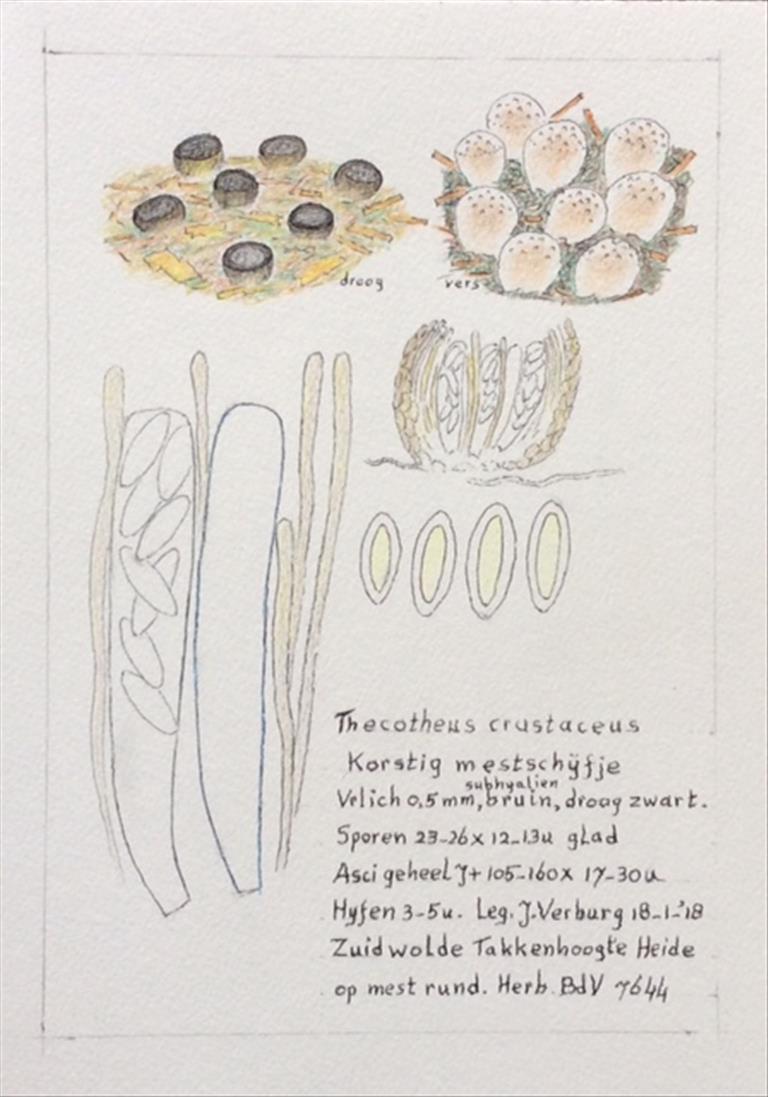 droog
vers
Thecotheus crustaceus
Korstig mestschijfje
subhyalien
Vrlich 0,5mm, bruin, droog zwart.
Sporen 23-26x 12-13u glad
Asci geheel J+ 105-160x 17-30u
Hyfen 3-5u. Leg. J.Verburg 18-1-'18
Zuidwolde Takkenhoogte Heide
op mest rund. Herb. BdV 7644